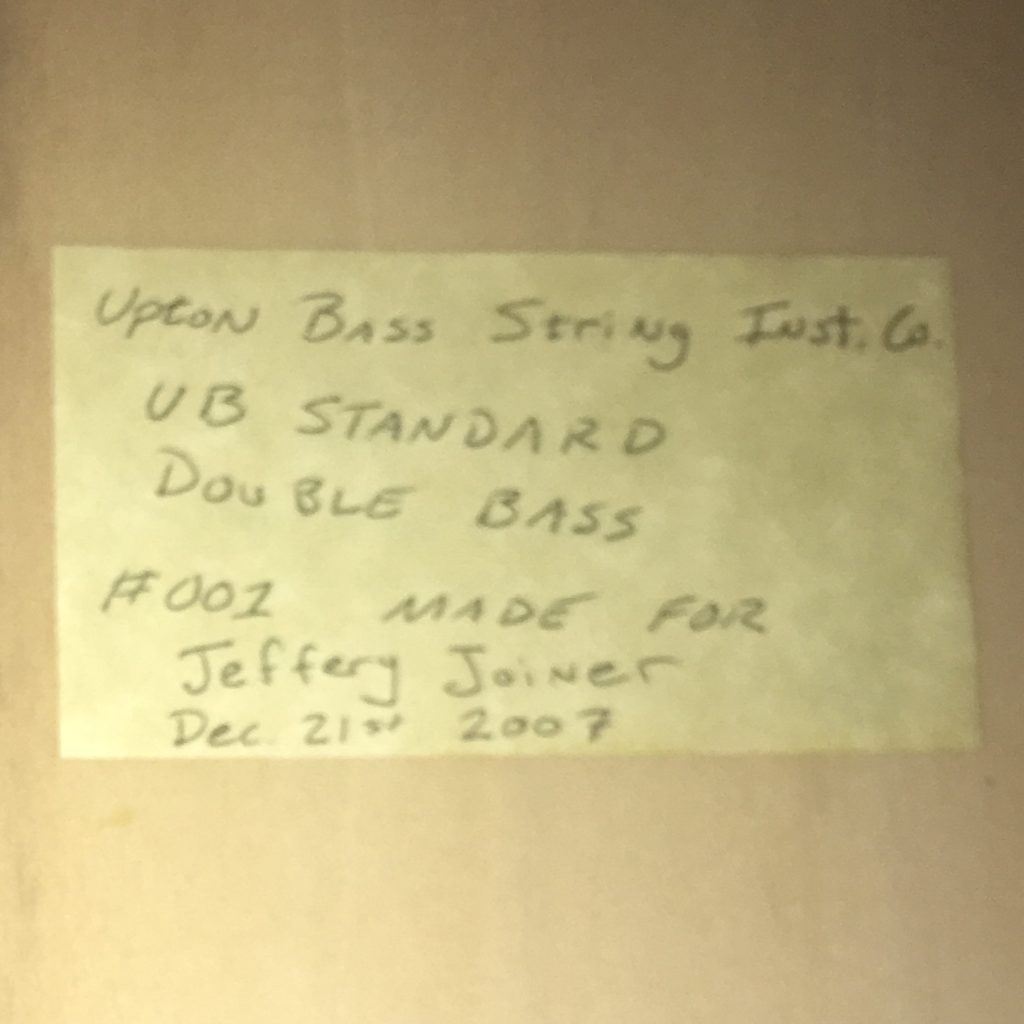 Upton Bass String Inst. Co.
UB STANDARD
DOUBLE BASS
#001 MADE FOR
Jeffery Joiner
Dec. 21st 2007